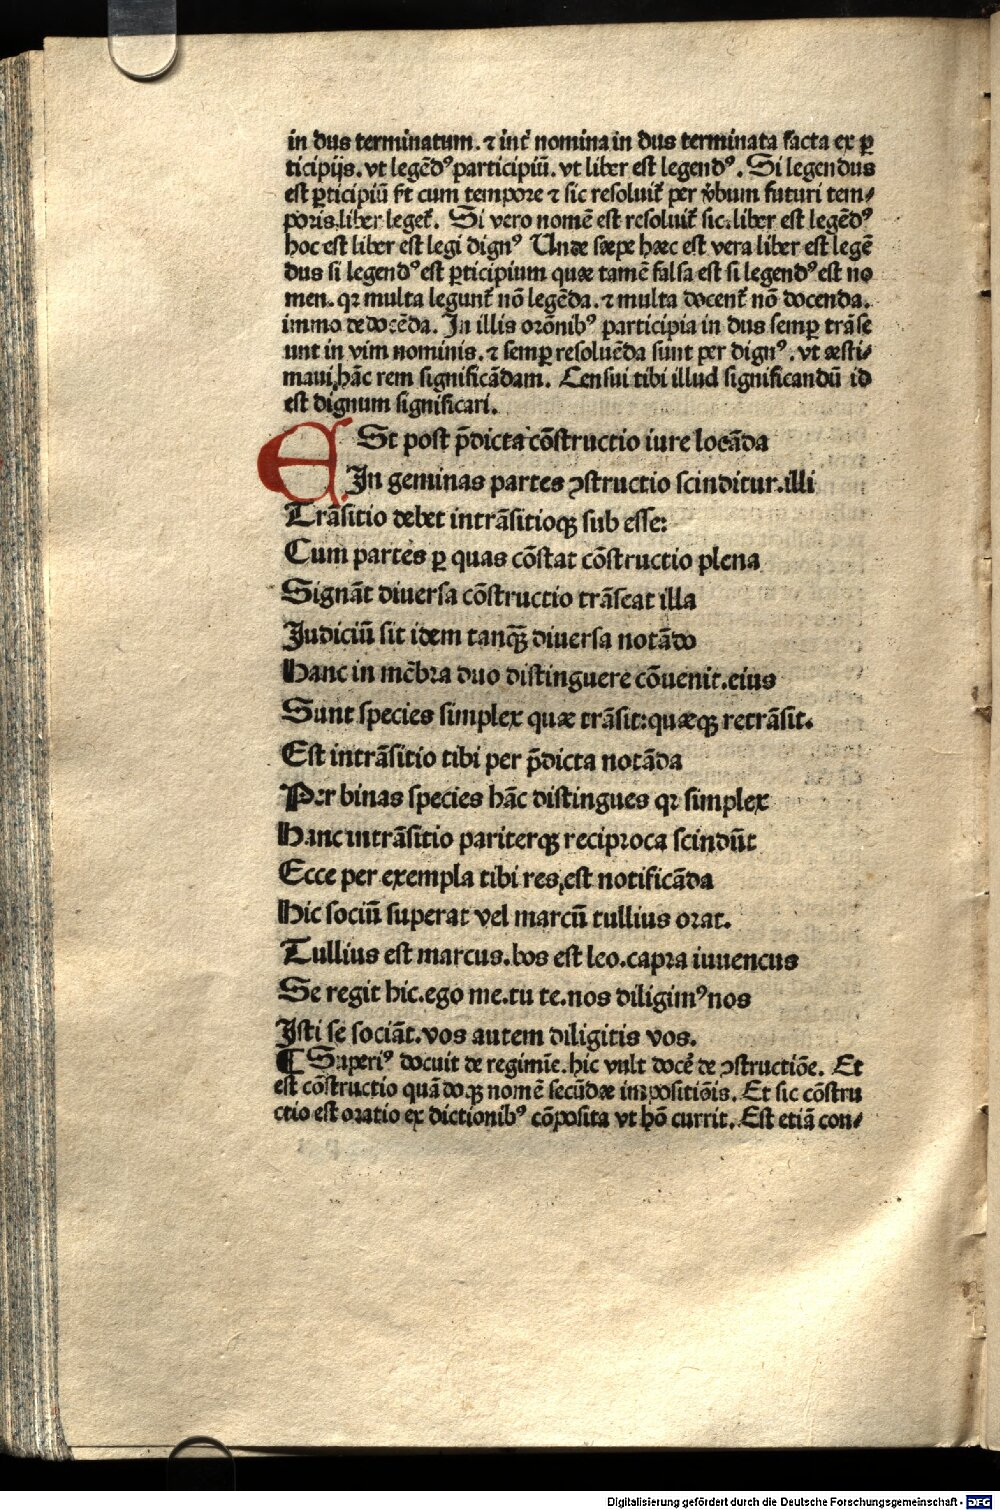 in dus terminatum. ⁊ int̉ nomina in dus terminata facta ex ꝑ
ticipijs. vt legēdꝰ participiū. vt liber est legendꝰ. Si legendus
est ꝑticipiū st̄ cum tempore ⁊ sic resoluit̉ per v̉bum futuri tem⸗
poris. liber leget̉. Si vero nomē est resoluit̉ sic. liber est legēdꝰ
hoc est liber est legi dignꝰ Unde sæpe hæc est vera liber est legē
dus si legendꝰ est ꝑticipium quæ tamē falsa est si legendꝰ est no
men. qꝛ multa legunt̉ nō legēda. ⁊ multa docent̉ nō docenda.
immo dedocēda. In illis orōnibꝰ participia in dus semꝑ trāse
unt in vim nominis. ⁊ semꝑ resoluēda sunt per dignꝰ. vt æsti⸗
maui hāc rem significādam. Censui tibi illud significandū id
est dignum significari.
ESt post p̄dicta cōstructio iure locāda
In geminas partes ꝯstructio scinditur. illi
Trāsitio debet intrāsitioqꝫ sub esse:
Cum partes ꝑ quas cōstat cōstructio plena
Signāt diuersa cōstructio trāseat illa
Judiciū sit idem tanqꝫ̄ diuersa notādo
Hanc in mēbra duo distinguere cōuenit. eius
Sunt species simplex quæ trāsit: quæqꝫ retrāsit.
Est intrāsitio tibi per p̄dicta notāda
Per binas species hāc distingues qꝛ simplex
Hanc intrāsitio pariterqꝫ reciproca scindūt
Ecce per exempla tibi res est notificāda
Hic sociū superat vel marcū tullius orat.
Tullius est marcus. bos est leo. capra iuuencus
Se regit hic. ego me. tu te. nos diligimꝰ nos
Isti se sociāt. vos autem diligitis vos.
¶ Superiꝰ docuit de regimīe. hic vult docē de ꝯstructiōe. Et
est cōstructio quādoqꝫ nomē secūdæ impositiōis. Et sic cōstru
ctio est oratio ex dictionibꝰ cōposita vt hō currit. Est etiā con⸗
Digitalisierung gefördert durch die Deutsche Forschungsgemeinschaft - DFG